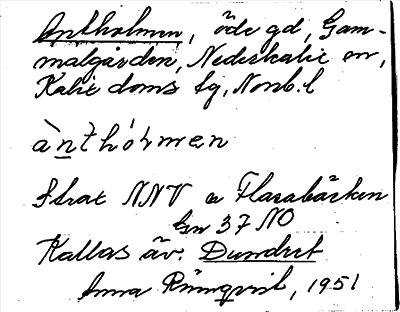 Antholmen, öde gd, Gam-
malgården, Nederkalix sn,
Kalix doms tg, Norrb. l
ànthól̀men
Strax NNV
Gr 37 NO
Kallas äv. Dundret
Anna Rönnqvist, 1951